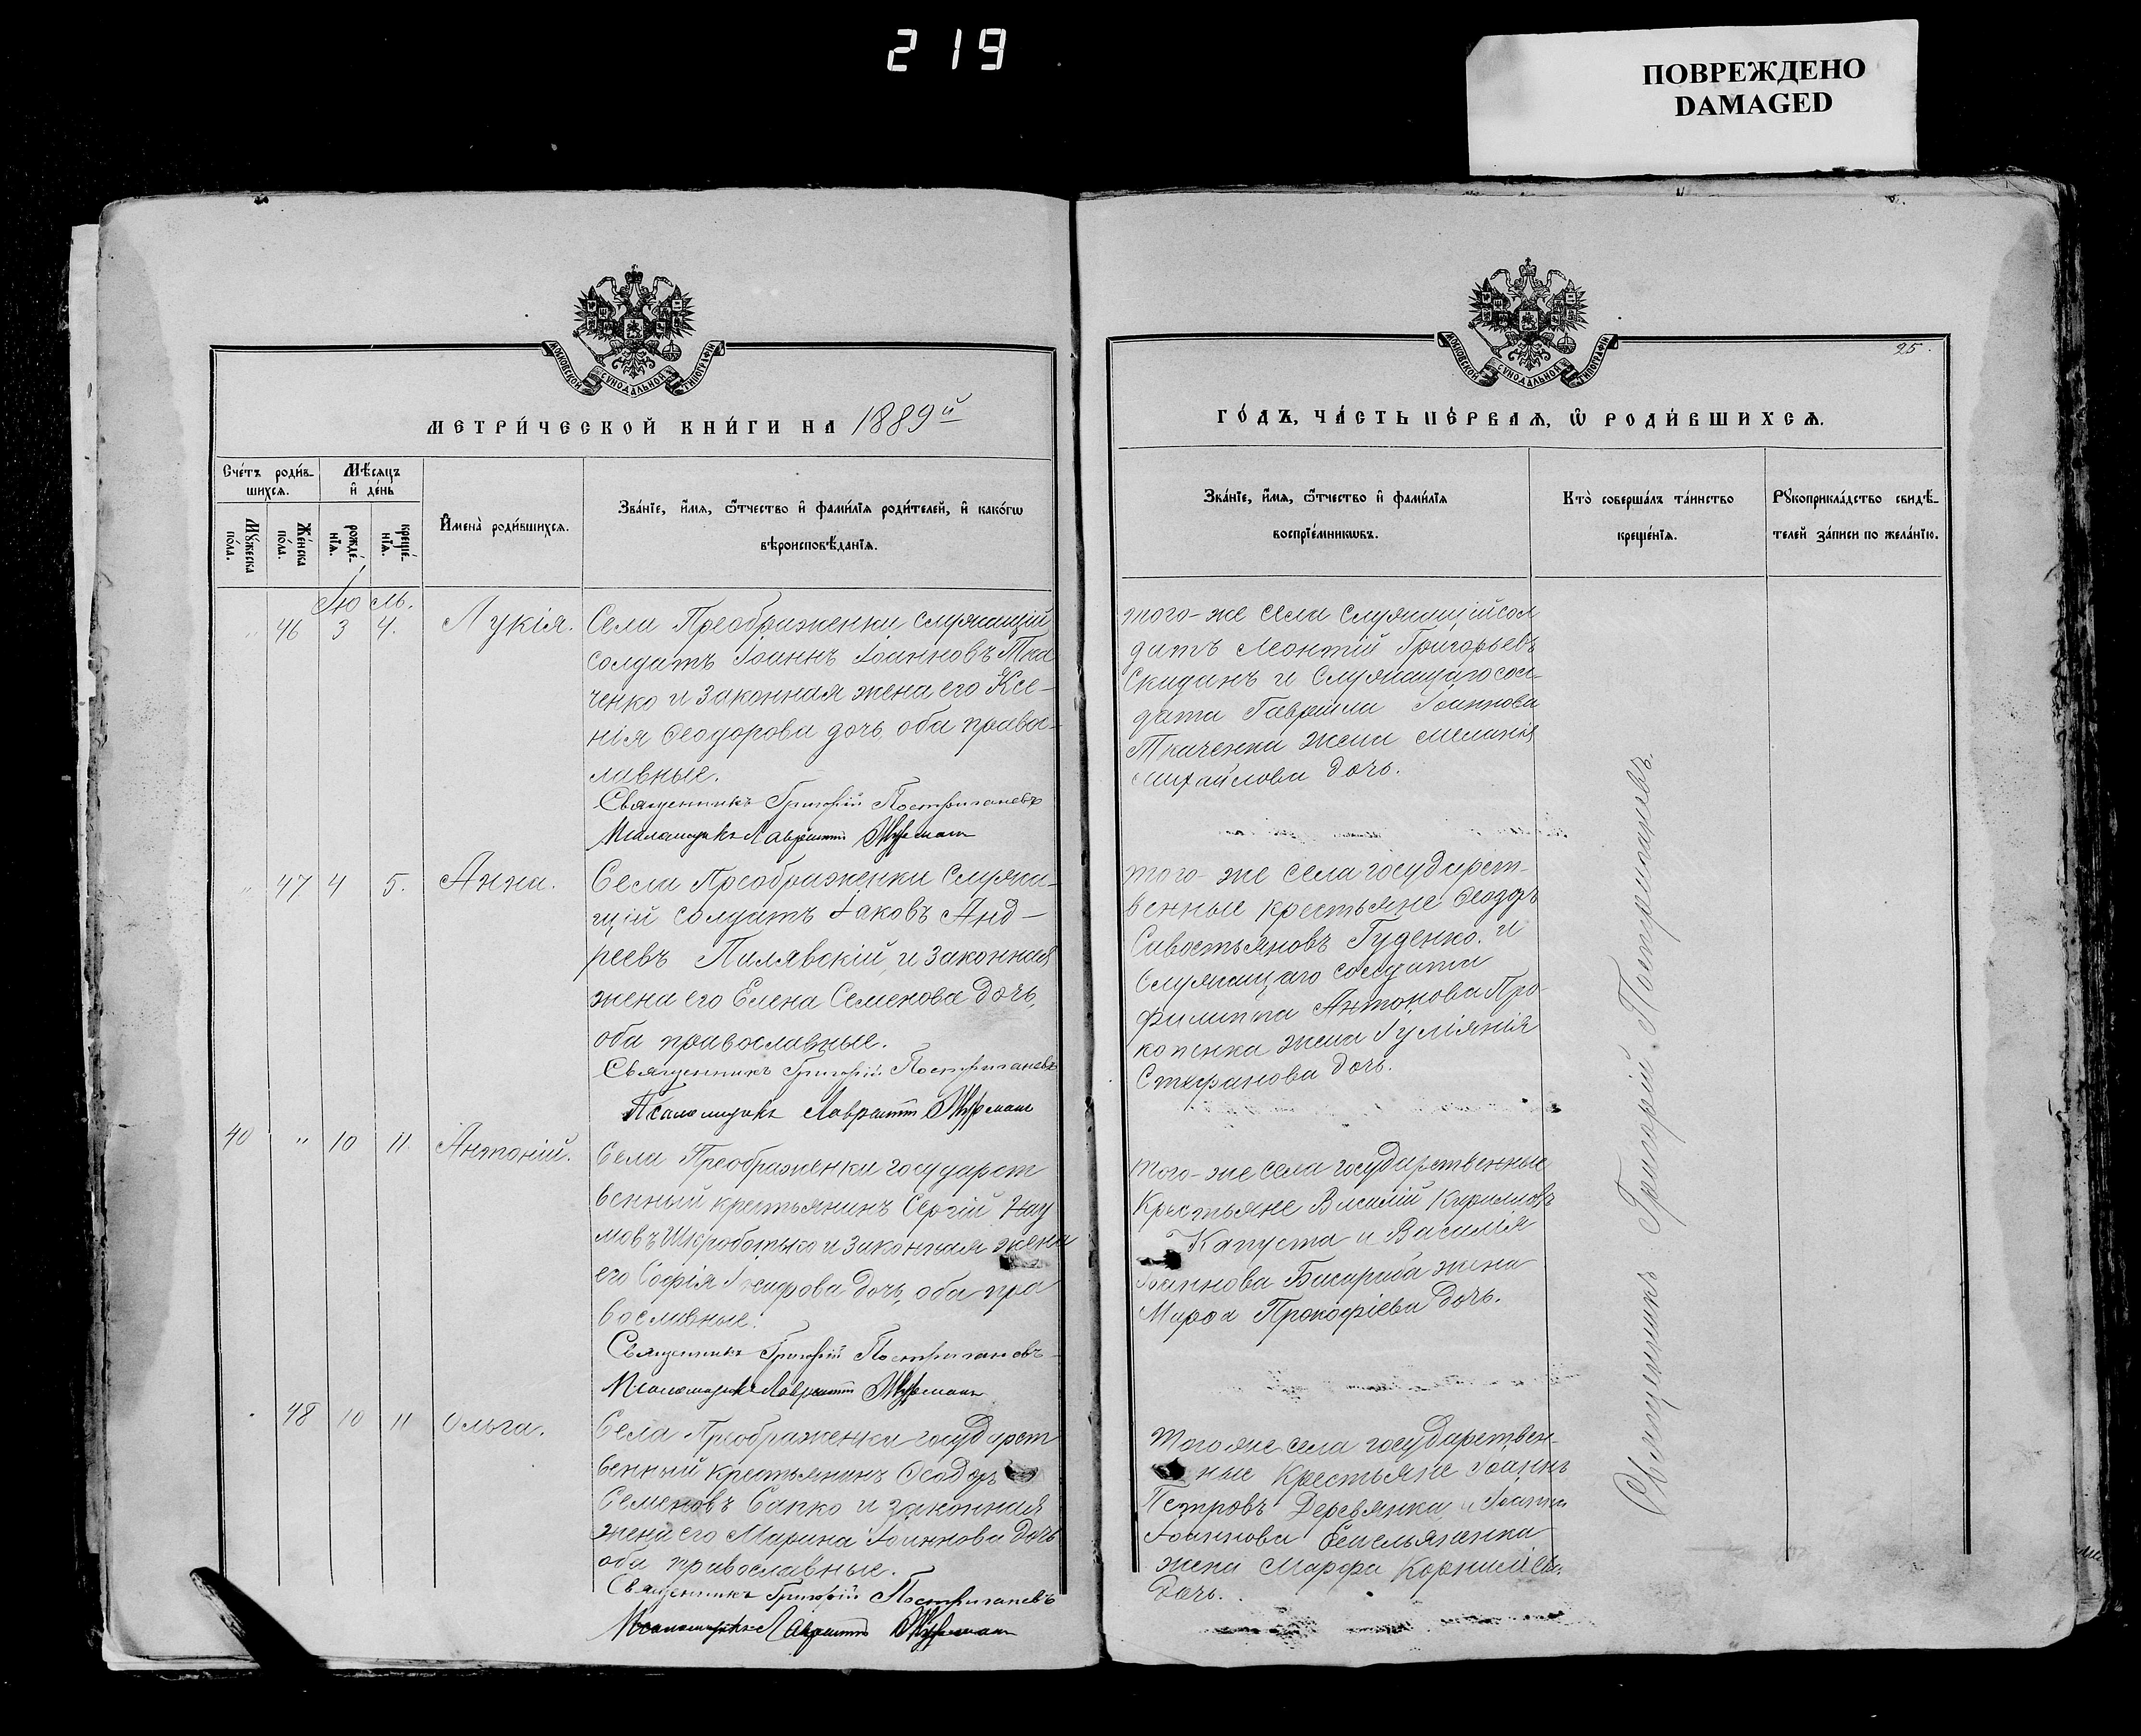 219
ПОВРЕЖДЕНО
DAMAGED
МОСКОВСКОЙ СУНОДАЛЬНОЙ ТИПОГРАФІИ
МЕТРИ́ЧЕСКОЙ КНИ́ГИ НА 1889й
Сче́тъ роди́в-
шихсѧ.
Мꙋ́жеска
по́ла.
Же́нска
по́ла.
Мѣ́сѧцъ
и҆ де́нь
рожде́-
нїѧ.
креще́-
нїѧ.
И҆мена̀ роди́вшихсѧ.
Зва́нїе, и҆́мѧ, ѻ҆́тчество и҆ фами́лїѧ роди́телей, и҆ како́гѡ
вѣроисповѣ́данїѧ.
Іюль.
" 46 3 4. Лукія.
Села Преображенки служащій
солдатъ Іоаннъ Іоанновъ Тка
ченко и законная жена его Ксе-
нія Ѳеодорова дочь, оба правос-
лавные.
Священникъ Григорій Постригановъ
Псаломщикъ Лаврентій
" 47 4 5. Анна.
Села Преображенки Служа-
щій солдатъ Іаковъ Анд-
реевъ Пилявскій, и законная
жена его Елена Семенова дочь,
оба православные.
Священникъ Григорій Постригановъ
Псаломщикъ Лаврентій
40 " 10 11. Антоній.
Села Преображенки государст
венный крестьянинъ Сергій Нау
мовъ Шкроботько и законная жена
его Софія Іосифова дочь, оба пра
вославные.
Священникъ Григорій Постригановъ
Псаломщикъ Лаврентій
48 10 11 Ольга.
Села Преображенки государст
венный крестьянинъ Ѳеодоръ
Семеновъ Сапко и законная
жена его Марина Іоаннова дочь
оба православные.
Священникъ Григорій Постригановъ
Псаломщикъ Лаврентій
25.
МОСКОВСКОЙ СУНОДАЛЬНОЙ ТИПОГРАФІИ
ГО́ДЪ, ЧА́СТЬ ПЕ́РВАѦ, Ѡ҆ РОДИ́ВШИХСѦ.
Зва́нїе, и҆́мѧ, ѻ҆́тчество и҆ фами́лїѧ
воспрїе́мникѡвъ.
Кто̀ соверша́лъ та́инство
креще́нїѧ.
Рꙋкоприкла́дство свидѣ́-
телей за́писи по жела́нїю.
того-же села Служащій сол
датъ Леонтій Григорьевъ
Скиданъ и Служащаго сол-
дата Гавріила Іоаннова
Ткаченка жена Меланія
Михайлова дочь.
того-же села государст-
венные крестьяне Ѳеодоръ
Сивостьяновъ Гуденко. и
Служащаго солдата
Филиппа Антонова Про-
копенка жена Іуліянія
Стефанова дочь.
того-же села государственные
Крестьяне Василій Кирилловъ
Капуста и Василія
Іоаннова жена
Марѳа Прокофіева дочь.
того же села государствен-
ные Крестьяне Іоаннъ
Петровъ Деревянка и Іоанна
Іоаннова Емельяненка
жена Марфа Корниліева
дочь.
Священникъ Григорій Постригановъ.